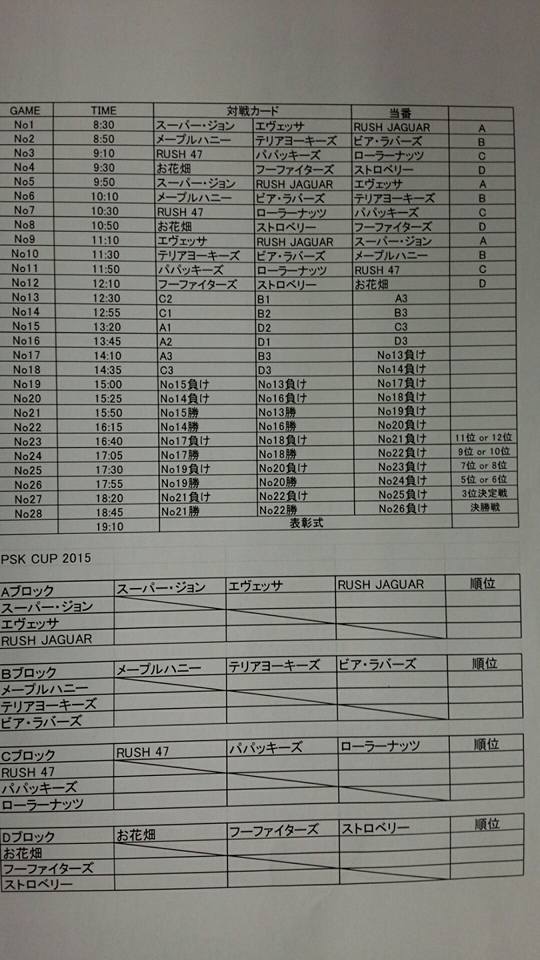 GAME TIME 対戦カード 当番
No1 8:30 スーパー・ジョン エヴェッサ RUSH JAGUAR A
No2 8:50 メープルハニー テリアヨーキーズ ビア・ラバーズ B
No3 9:10 RUSH 47 パパッキーズ ローラーナッツ C
No4 9:30 お花畑 フーファイターズ ストロベリー D
No5 9:50 スーパー・ジョン RUSH JAGUAR エヴェッサ A
No6 10:10 メープルハニー ビア・ラバーズ テリアヨーキーズ B
No7 10:30 RUSH 47 ローラーナッツ パパッキーズ C
No8 10:50 お花畑 ストロベリー フーファイターズ D
No9 11:10 エヴェッサ RUSH JAGUAR スーパー・ジョン A
No10 11:30 テリアヨーキーズ ビア・ラバーズ メープルハニー B
No11 11:50 パパッキーズ ローラーナッツ RUSH 47 C
No12 12:10 フーファイターズ ストロベリー お花畑 D
No13 12:30 C2 B1 A3
No14 12:55 C1 B2 B3
No15 13:20 A1 D2 C3
No16 13:45 A2 D1 D3
No17 14:10 A3 B3 No13負け
No18 14:35 C3 D3 No14負け
No19 15:00 No15負け No13負け No17負け
No20 15:25 No14負け No16負け No18負け
No21 15:50 No15勝 No13勝 No19負け
No22 16:15 No14勝 No16勝 No20負け
No23 16:40 No17負け No18負け No21負け 11位 or 12位
No24 17:05 No17勝 No18勝 No22負け 9位 or 10位
No25 17:30 No19負け No20負け No23負け 7位 or 8位
No26 17:55 No19勝 No20勝 No24負け 5位 or 6位
No27 18:20 No21負け No22負け No25負け 3位決定戦
No28 18:45 No21勝 No22勝 No26負け 決勝戦
19:10 表彰式
PSK CUP 2015
Aブロック スーパー・ジョン エヴェッサ RUSH JAGUAR 順位
スーパー・ジョン
エヴェッサ
RUSH JAGUAR
Bブロック メープルハニー テリアヨーキーズ ビア・ラバーズ 順位
メープルハニー
テリアヨーキーズ
ビア・ラバーズ
Cブロック RUSH 47 パパッキーズ ローラーナッツ 順位
RUSH 47
パパッキーズ
ローラーナッツ
Dブロック お花畑 フーファイターズ ストロベリー 順位
お花畑
フーファイターズ
ストロベリー